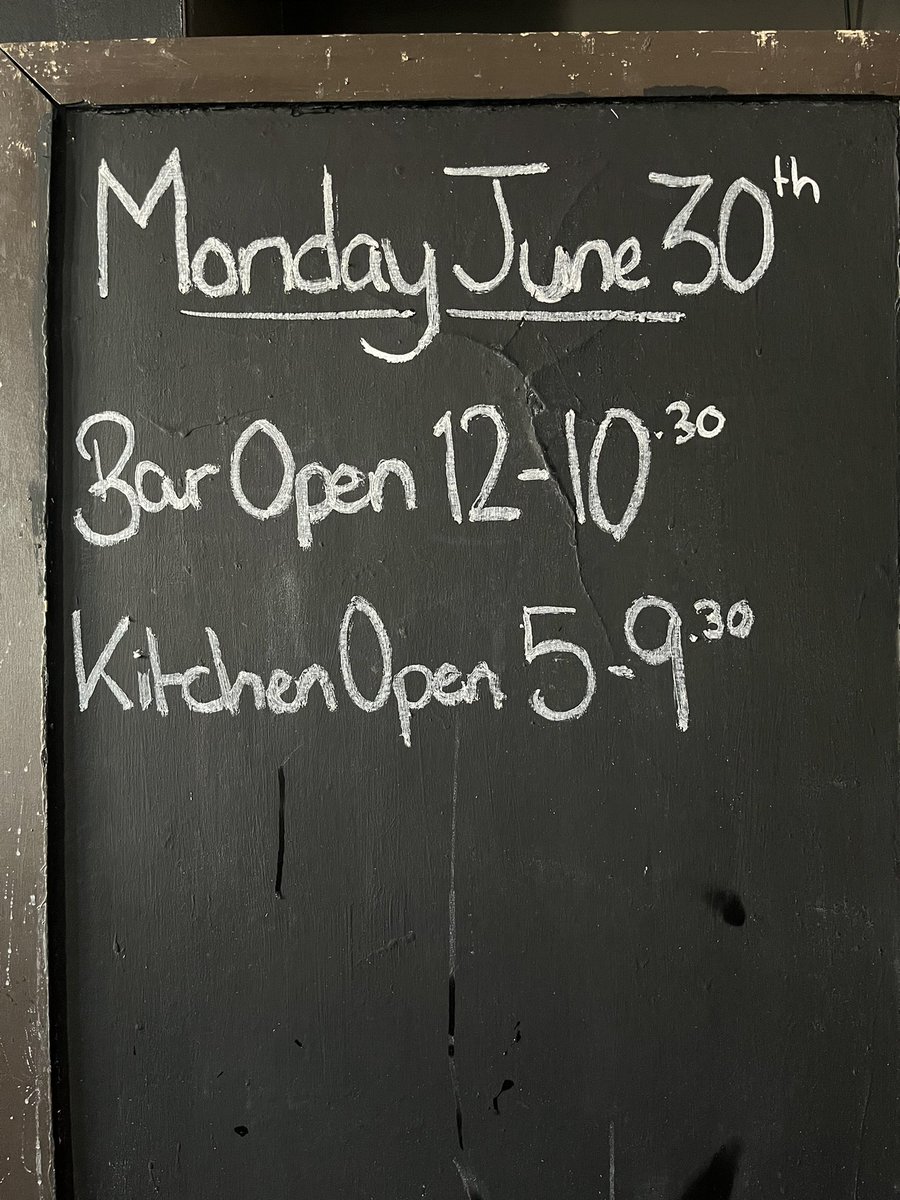 Monday June 30th
Bar Open 12-10.30
Kitchen Open 5-9.30